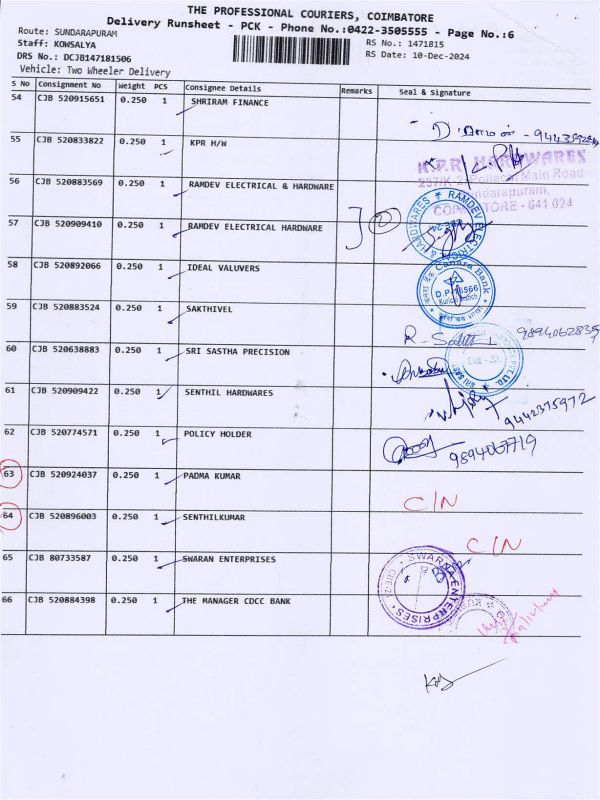 THE PROFESSIONAL COURIERS, COIMBATORE
Delivery Runsheet - PCK - Phone No.:0422-3505555 - Page No.:6
Route: SUNDARAPURAM
Staff: KOWSALYA RS No.: 1471815
DRS No.: DCJB147181506 RS Date: 10-Dec-2024
Vehicle: Two Wheeler Delivery
S No Consignment No Weight PCS Consignee Details Remarks Seal & Signature
54 CJB 520915651 0.250 1 SHRIRAM FINANCE
55 CJB 520833822 0.250 1 KPR H/W
K.P.R. HARDWARES
237/K-2, Pollachi Main Road
Sundarapuram,
COIMBATORE - 641 024
56 CJB 520883569 0.250 1 RAMDEV ELECTRICAL & HARDWARE
57 CJB 520909410 0.250 1 RAMDEV ELECTRICAL HARDWARE
2
RAMDEV ELECTRICAL & HARDWARES
58 CJB 520892066 0.250 1 IDEAL VALUVERS
Canara Bank
D.P. 16566
59 CJB 520883524 0.250 1 SAKTHIVEL
9894062835
60 CJB 520638883 0.250 1 SRI SASTHA PRECISION
61 CJB 520909422 0.250 1 SENTHIL HARDWARES
9442375972
62 CJB 520774571 0.250 1 POLICY HOLDER
9894067719
63 CJB 520924037 0.250 1 PADMA KUMAR
C/N
64 CJB 520896003 0.250 1 SENTHILKUMAR
C/N
65 CJB 80733587 0.250 1 SWARAN ENTERPRISES
SWARNA ENTERPRISES
66 CJB 520884398 0.250 1 THE MANAGER CDCC BANK